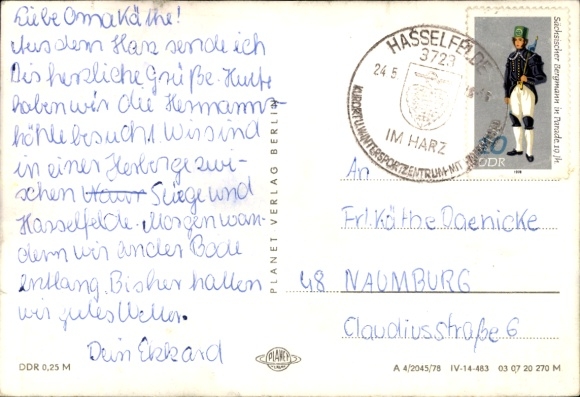 Liebe Oma Käthe!
Aus dem Harz sende ich
Dir herzliche Grüße. Heute
haben wir die Hermanns-
höhle besucht. Wir sind
in einer Herberge zwi-
schen Stiege und
Hasselfelde. Morgen wan-
dern wir an der Bode
entlang. Bisher hatten
wir gutes Wetter.
Dein Ekkard
DDR 0,25 M
PLANET VERLAG BERLIN
PLANET
VERLAG
HASSELFELDE
3723
24.5
IM HARZ
KURORT U. WINTERSPORTZENTRUM MIT
Sächsischer Bergmann in Parade, 19. Jh.
20
DDR
1978
An
Frl. Käthe Daenicke
48 NAUMBURG
Claudiusstraße 6
A 4/2045/78 IV-14-483 03 07 20 270 M